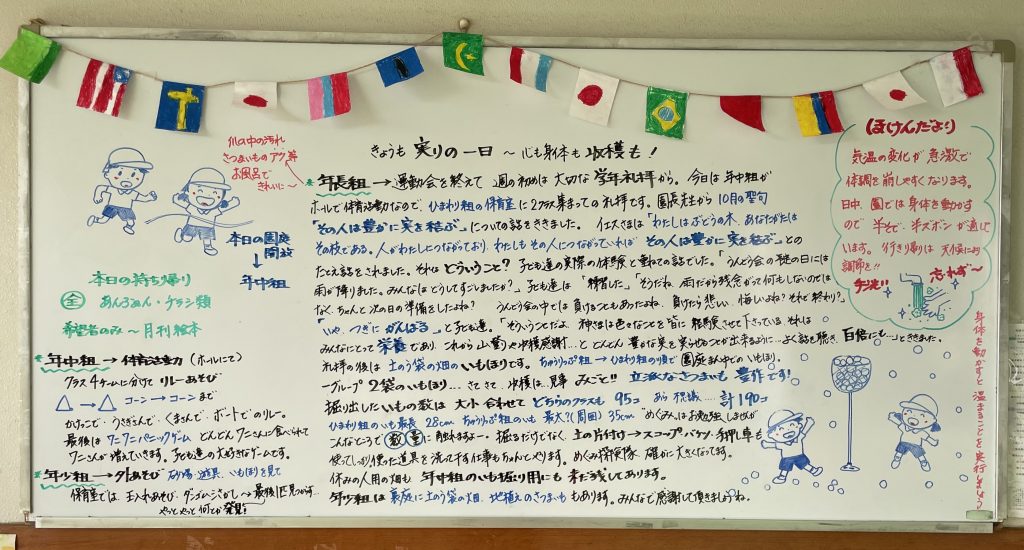 きょうも 実りの一日 ~ 心も身体も 収穫も!
爪の中の汚れ
さつまいものアク 等
お風呂で
きれいに~
本日の園庭
開放
↓
年中組
本日の持ち帰り
全 あんふぁん・チラシ類
希望者のみ ~ 月刊絵本
年中組 → 体育活動 (ホールにて)
クラス4チームに分けて リレーあそび
△ → △ コーン → コーン まで
かけっこで、うさぎさんで、くまさんで、ボートでのリレー。
最後は ワニワニパニックゲーム どんどん ワニさんに食べられて
ワニさんが増えていきます。子ども達の大好きなゲームです。
年少組 → 外あそび 砂場 遊具 いもほりを見て
保育室では 玉入れあそび・ダンゴムシさがし → 最後1匹見つからず…
やっと やっと 何とか 発見!!
年長組 → 運動会を終えて 週の初めは 大切な 学年礼拝から。今日は 年中組が
ホールで体育活動なので、ひまわり組の保育室に2クラス集まっての礼拝です。園長先生から 10月の聖句
「その人は豊かに実を結ぶ」についての話をききました。イエスさまは「わたしはぶどうの木、あなたがたは
その枝である。人がわたしにつながっており、わたしも その人につながっていれば その人は豊かに実を結ぶ」との
たとえ話をされました。それは どういうこと? 子ども達の実際の体験と重ねての話でした。「うんどう会の次の日には
雨が降りました。みんなはどうしてすごしましたか?」子ども達は「掃除した」「そうだね。雨だから残念がって何もしないのでは
なく、ちゃんと次の日の準備をしたよね? うんどう会の中では 負けることもあったよね。負けたら悲しい、悔しいね?それで終わり?」
「いや、つぎに がんばる」と子ども達。「そういうことだよ。神さまは色々なことを皆に 経験させて下さっている。それは
みんなにとって 栄養であり、これから 山登りや収穫感謝… と どんどん 豊かな実を実らせることが出来るように…よく話を聴き、百倍にも…」ときました。
礼拝の後は 土のう袋の畑のいもほりです。ちゅうりっぷ組 → ひまわり組の順で 園庭まん中でのいもほり。
一グループ 2袋のいもほり… さてさて、収穫は…見事 みごと!! 立派なさつまいも 豊作です!
掘り出したいもの数は 大小合わせて どちらのクラスも 95コ あら不思議… 計190コ
ひまわり組のいも最長 28cm ちゅうりっぷ組のいも 最大?(周囲) 35cm “めぐみ”はお勉強しませんが
こんなところで 数 量 に触れれますよ~。掘るだけでなく、土の片付け→スコップ・バケツ・手押し車も
使って しっかり使った道具を洗って干す仕事もちゃんとやります。めぐみ探険隊 確かに大きくなってます。
休みの人用の畑も 年中組のいも掘り用にも まだ残してあります。
年少組は 裏庭に土のう袋の畑、地植えのさつまいももあります。みんなで感謝して頂きましょうね。
ほけんだより
気温の変化が急激で
体調を崩しやすくなります。
日中、園では身体を動かす
ので 半そで、半ズボンが適して
います。行き帰りは 天候により
調節を!!
手洗い 忘れず~
身体を動かすと温まることを実行しましょう